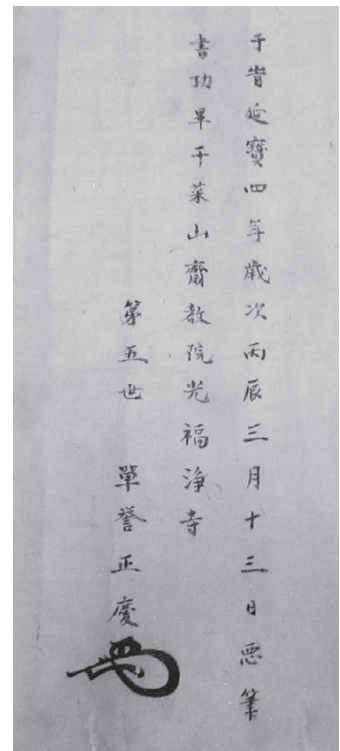 于昔延寶四年歲次丙辰三月十三日悪筆
書功畢干菜山齋教院光福淨寺
第五世 單誉正慶